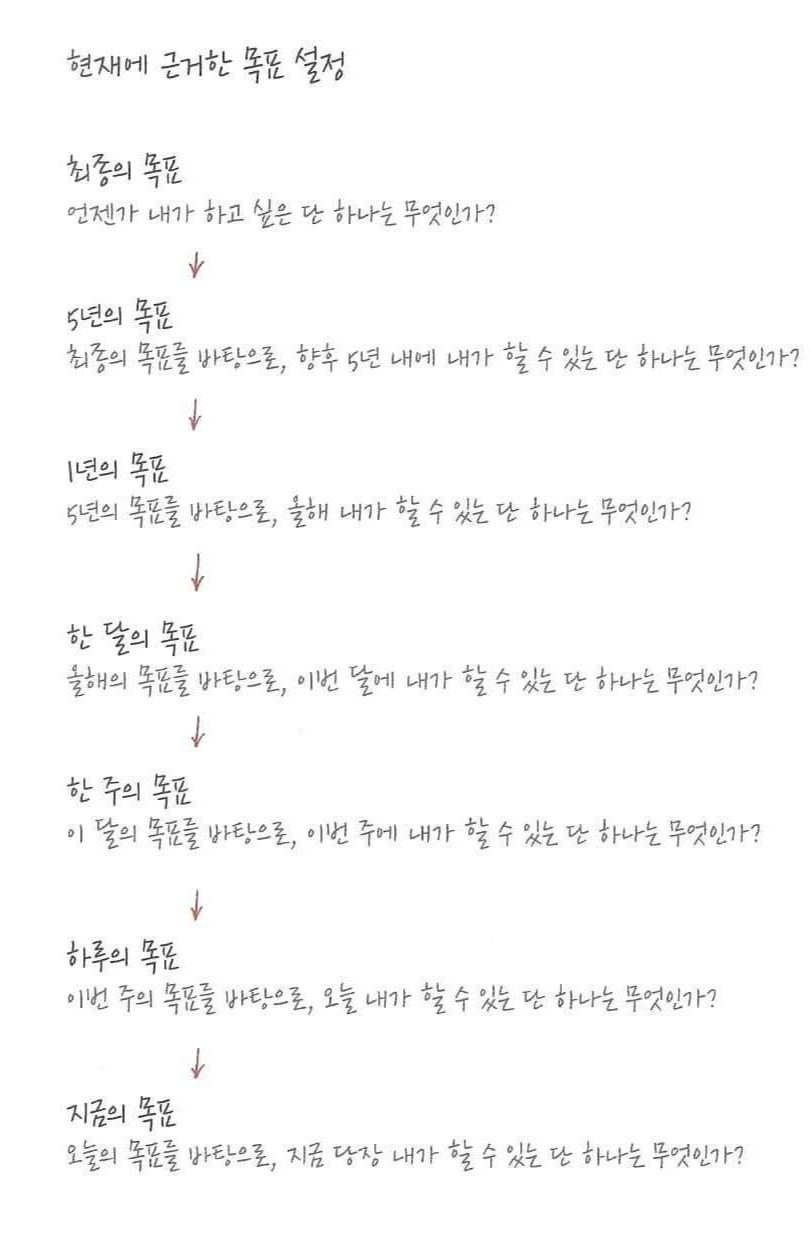 현재에 근거한 목표 설정
최종의 목표
언젠가 내가 하고 싶은 단 하나는 무엇인가?
↓
5년의 목표
최종의 목표를 바탕으로, 향후 5년 내에 내가 할 수 있는 단 하나는 무엇인가?
↓
1년의 목표
5년의 목표를 바탕으로, 올해 내가 할 수 있는 단 하나는 무엇인가?
↓
한 달의 목표
올해의 목표를 바탕으로, 이번 달에 내가 할 수 있는 단 하나는 무엇인가?
↓
한 주의 목표
이 달의 목표를 바탕으로, 이번 주에 내가 할 수 있는 단 하나는 무엇인가?
↓
하루의 목표
이번 주의 목표를 바탕으로, 오늘 내가 할 수 있는 단 하나는 무엇인가?
↓
지금의 목표
오늘의 목표를 바탕으로, 지금 당장 내가 할 수 있는 단 하나는 무엇인가?